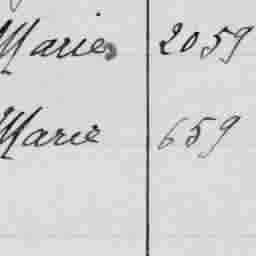 Marie 2059
Marie 659